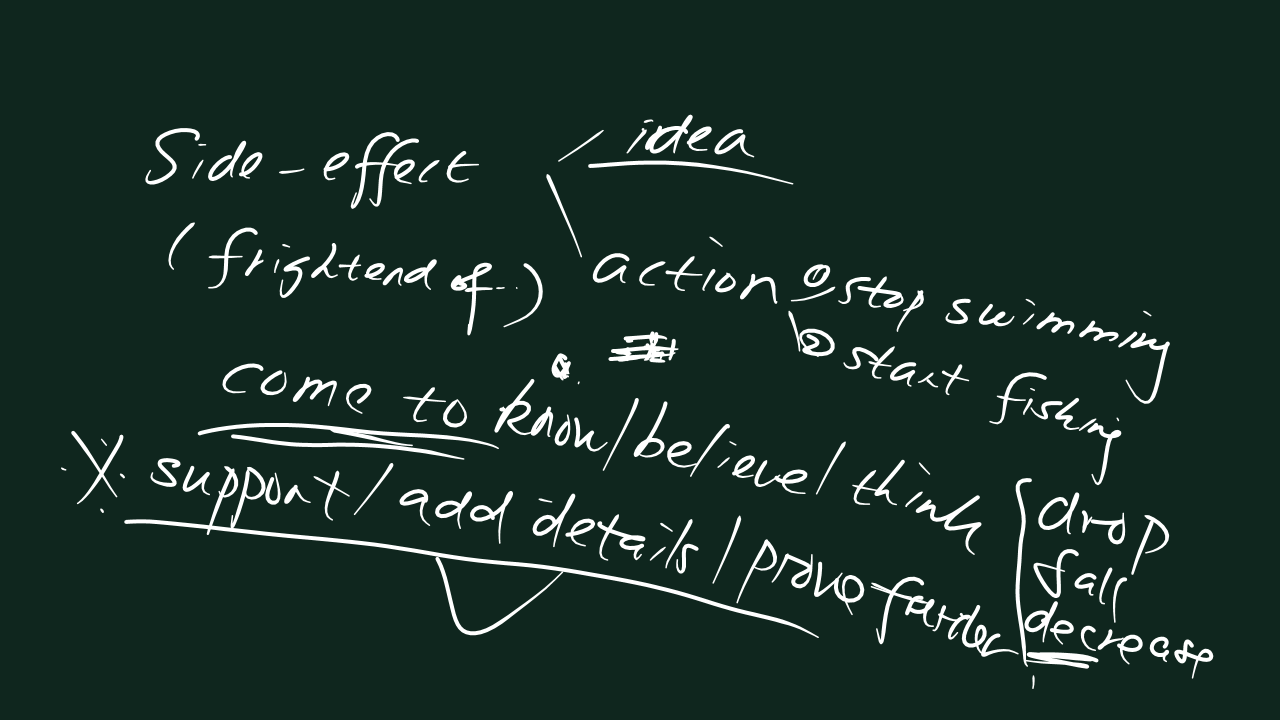 Side-effect idea
(frightend of..) action ① stop swimming
② start fishing
come to know/believe/think
※ support/add details/prove further
drop
fall
decrease